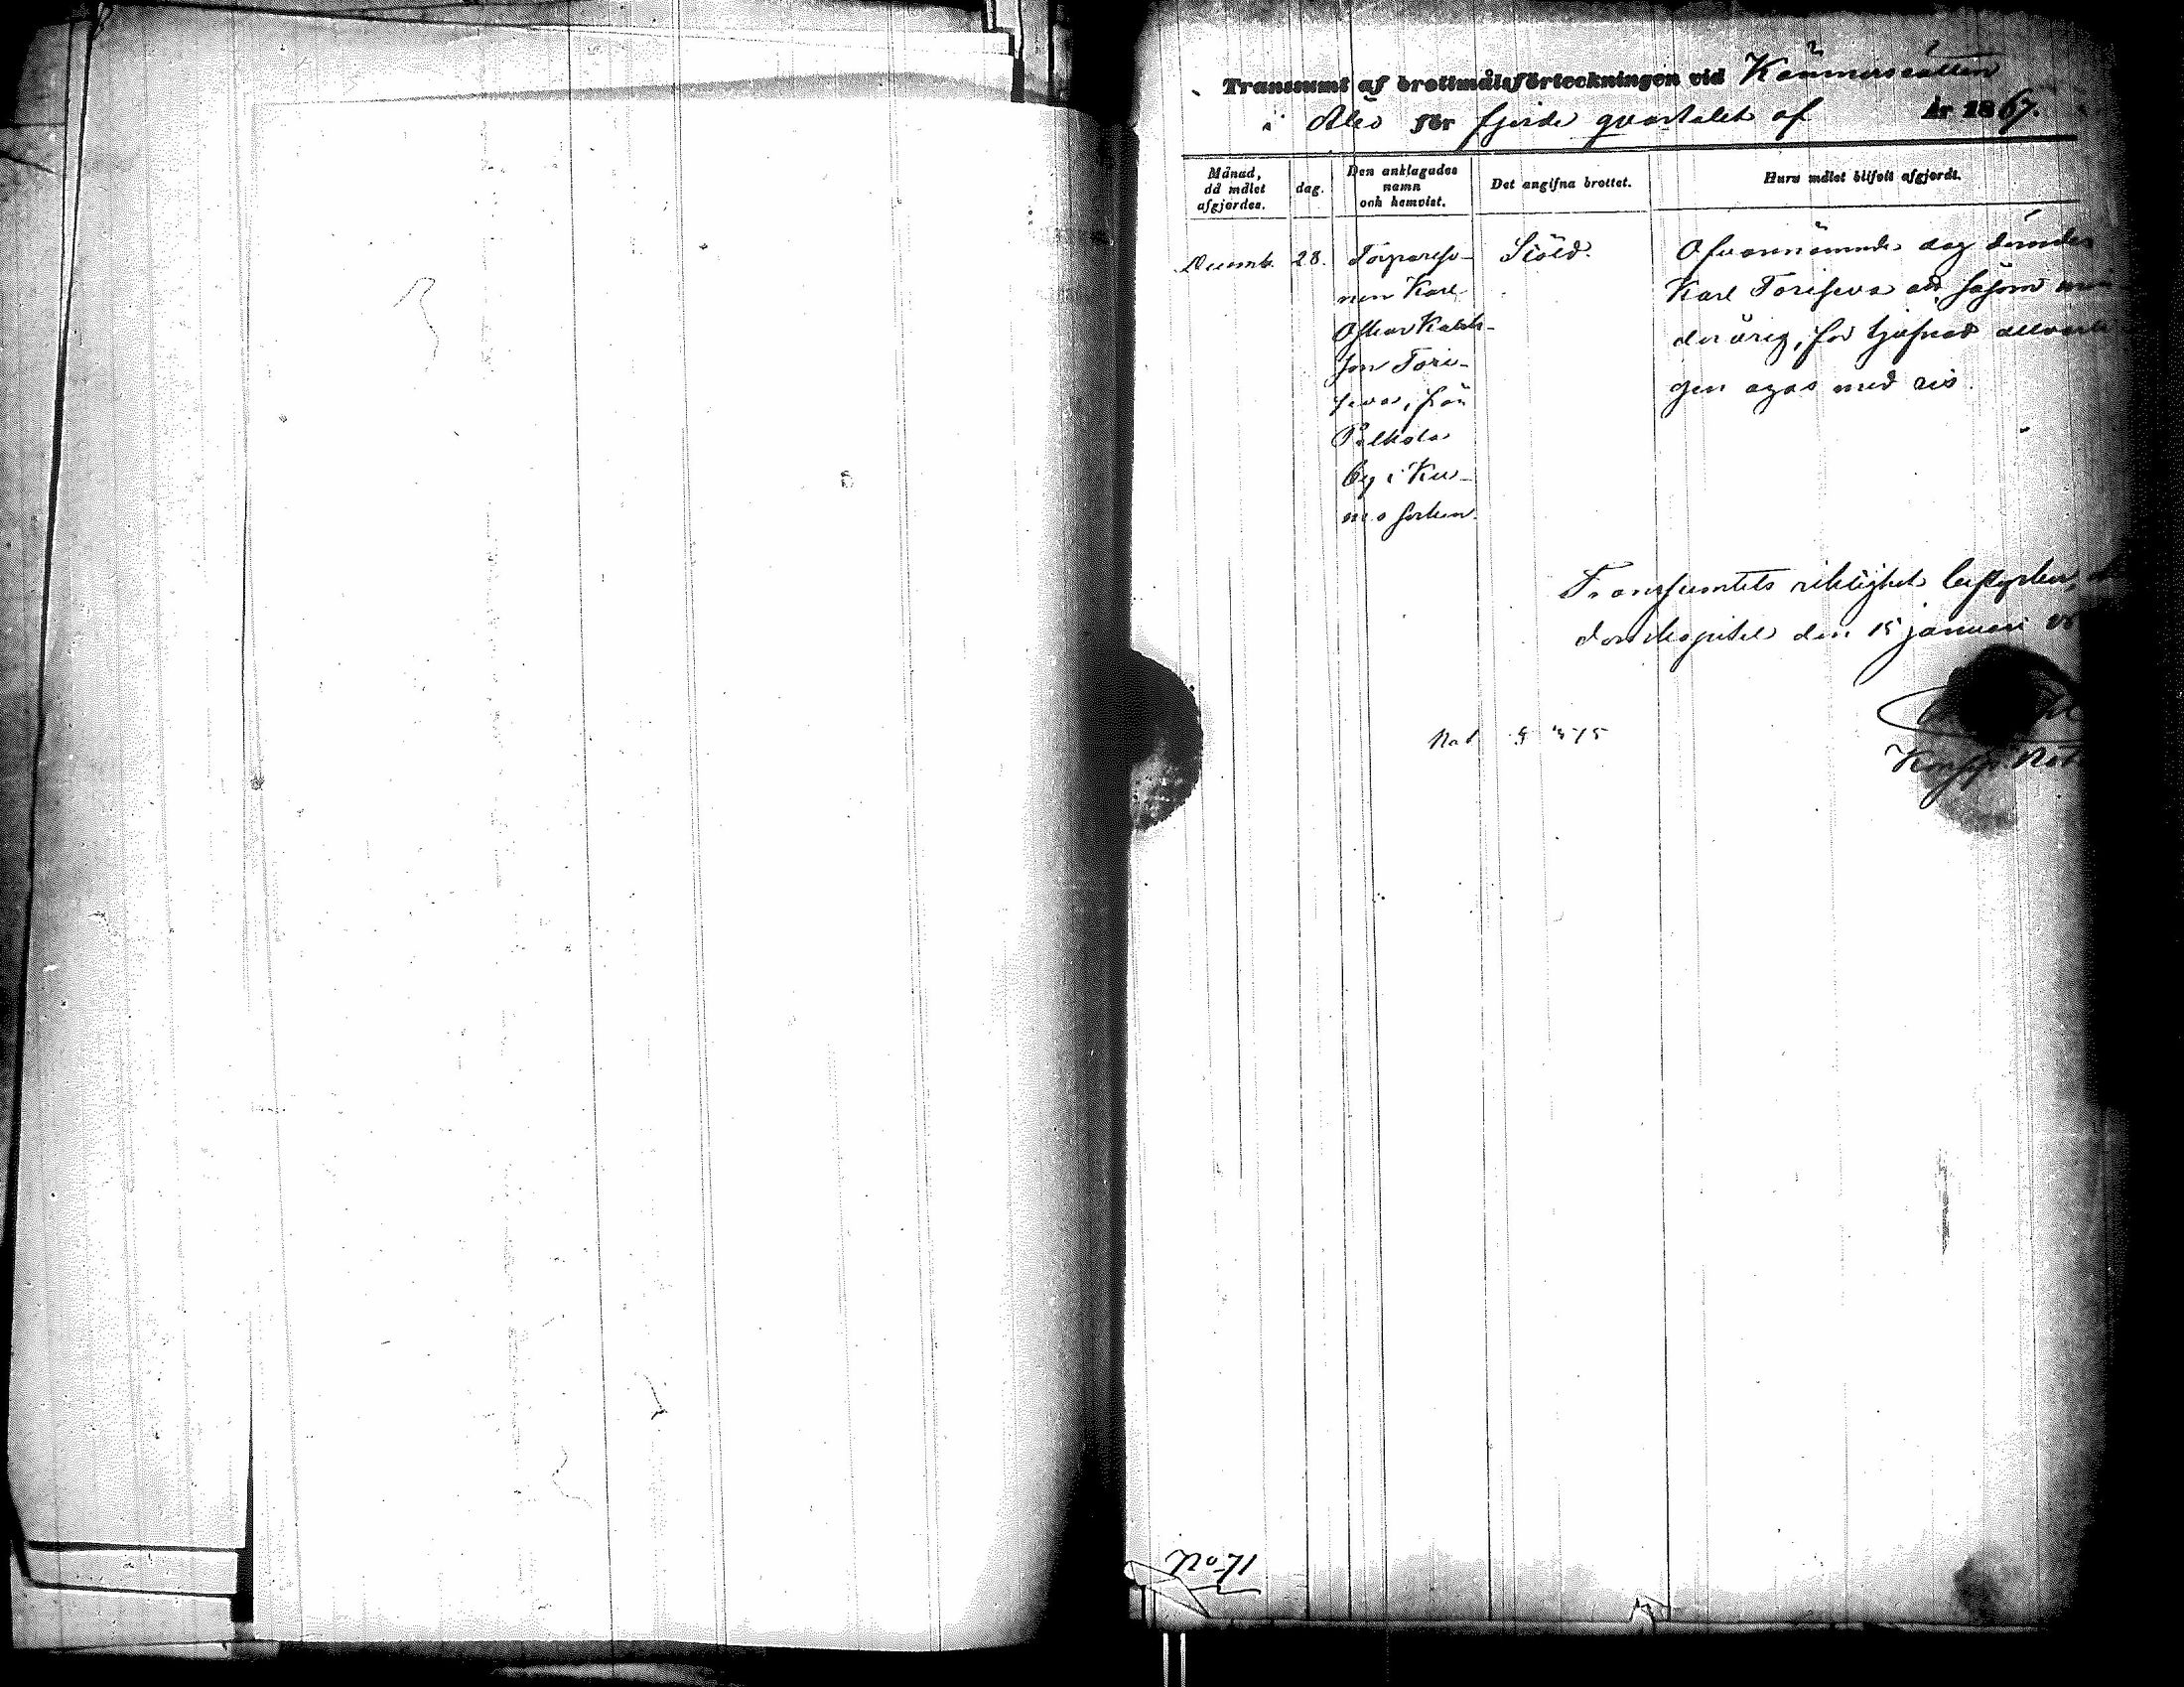 Transsumt af brottmålsförteckningen vid Kämnersrätten
i Åbo för fjerde qvartalet af år 1867.
Månad, då målet afgjordes.
dag.
Den anklagades namn och hemvist.
Det angifna brottet.
Huru målet blifvit afgjordt.
Decemb.
28.
Torpareso-
nen Karl
Oskar Karls-
son Tori-
seva, från
by i Ku-
mo socken.
Stöld.
Ofvannämnde dag dömdes
Karl Toriseva att såsom min-
derårig, för tjufnad allvarli-
gen agas med ris.
Transsumtets riktighet bestyrker,
den 15 januari
No 71